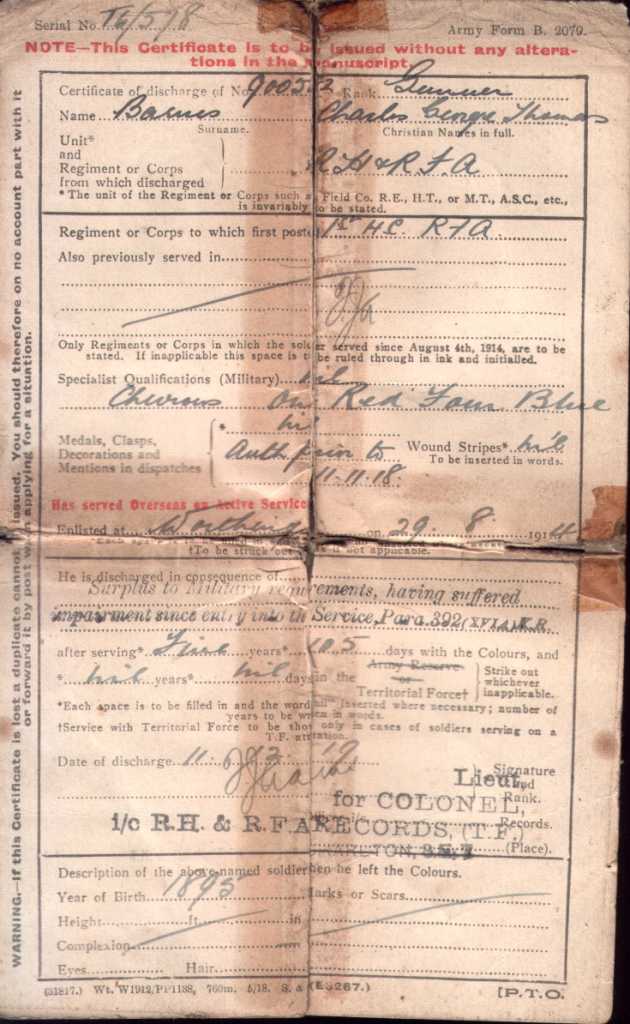 Serial No. T6/5/8
Army Form B. 2079.
NOTE—This Certificate is to be issued without any altera-
tions in the manuscript.
Certificate of discharge of No. 900522 Rank Gunner
Name Barnes Charles George Thomas
Surname. Christian Names in full.
Unit*
and
Regiment or Corps
from which discharged
R H & R F A
* The unit of the Regiment or Corps such as Field Co. R.E., H.T., or M.T., A.S.C., etc.,
is invariably to be stated.
Regiment or Corps to which first posted 1st H C RFA
Also previously served in
Only Regiments or Corps in which the soldier served since August 4th, 1914, are to be
stated. If inapplicable this space is to be ruled through in ink and initialled.
Specialist Qualifications (Military) nil
Chevrons One Red Four Blue
Medals, Clasps,
Decorations and
Mentions in dispatches
* nil
Auth prior to
11.11.18.
Wound Stripes* nil
To be inserted in words.
Has served Overseas on Active Service
Enlisted at Worthing on 29. 8. 1914
†To be struck out if not applicable.
He is discharged in consequence of
Surplus to Military requirements, having suffered
impairment since entry into the Service, Para. 392 (XVIa) K.R.
after serving* Five years* 105 days with the Colours, and
* nil years* nil days in the Army Reserve
or
Territorial Force†
Strike out
whichever
inapplicable.
*Each space is to be filled in and the word "nil" inserted where necessary; number of
years to be written in words.
†Service with Territorial Force to be shown only in cases of soldiers serving on a
T.F. attestation.
Date of discharge 11 12 19
Signature
and
Rank.
Lieut.
for COLONEL,
i/c R.H. & R.F.A RECORDS, (T.F.)
Records.
CHARLTON, S.E.7
(Place).
Description of the above-named soldier when he left the Colours.
Year of Birth 1895 Marks or Scars
Height ft. in
Complexion
Eyes Hair
(31817.) Wt. W1912/PP1138, 760m. 5/18. S. & (E3267.)
[P.T.O.
WARNING.—If this Certificate is lost a duplicate cannot be issued. You should therefore on no account part with it
or forward it by post when applying for a situation.